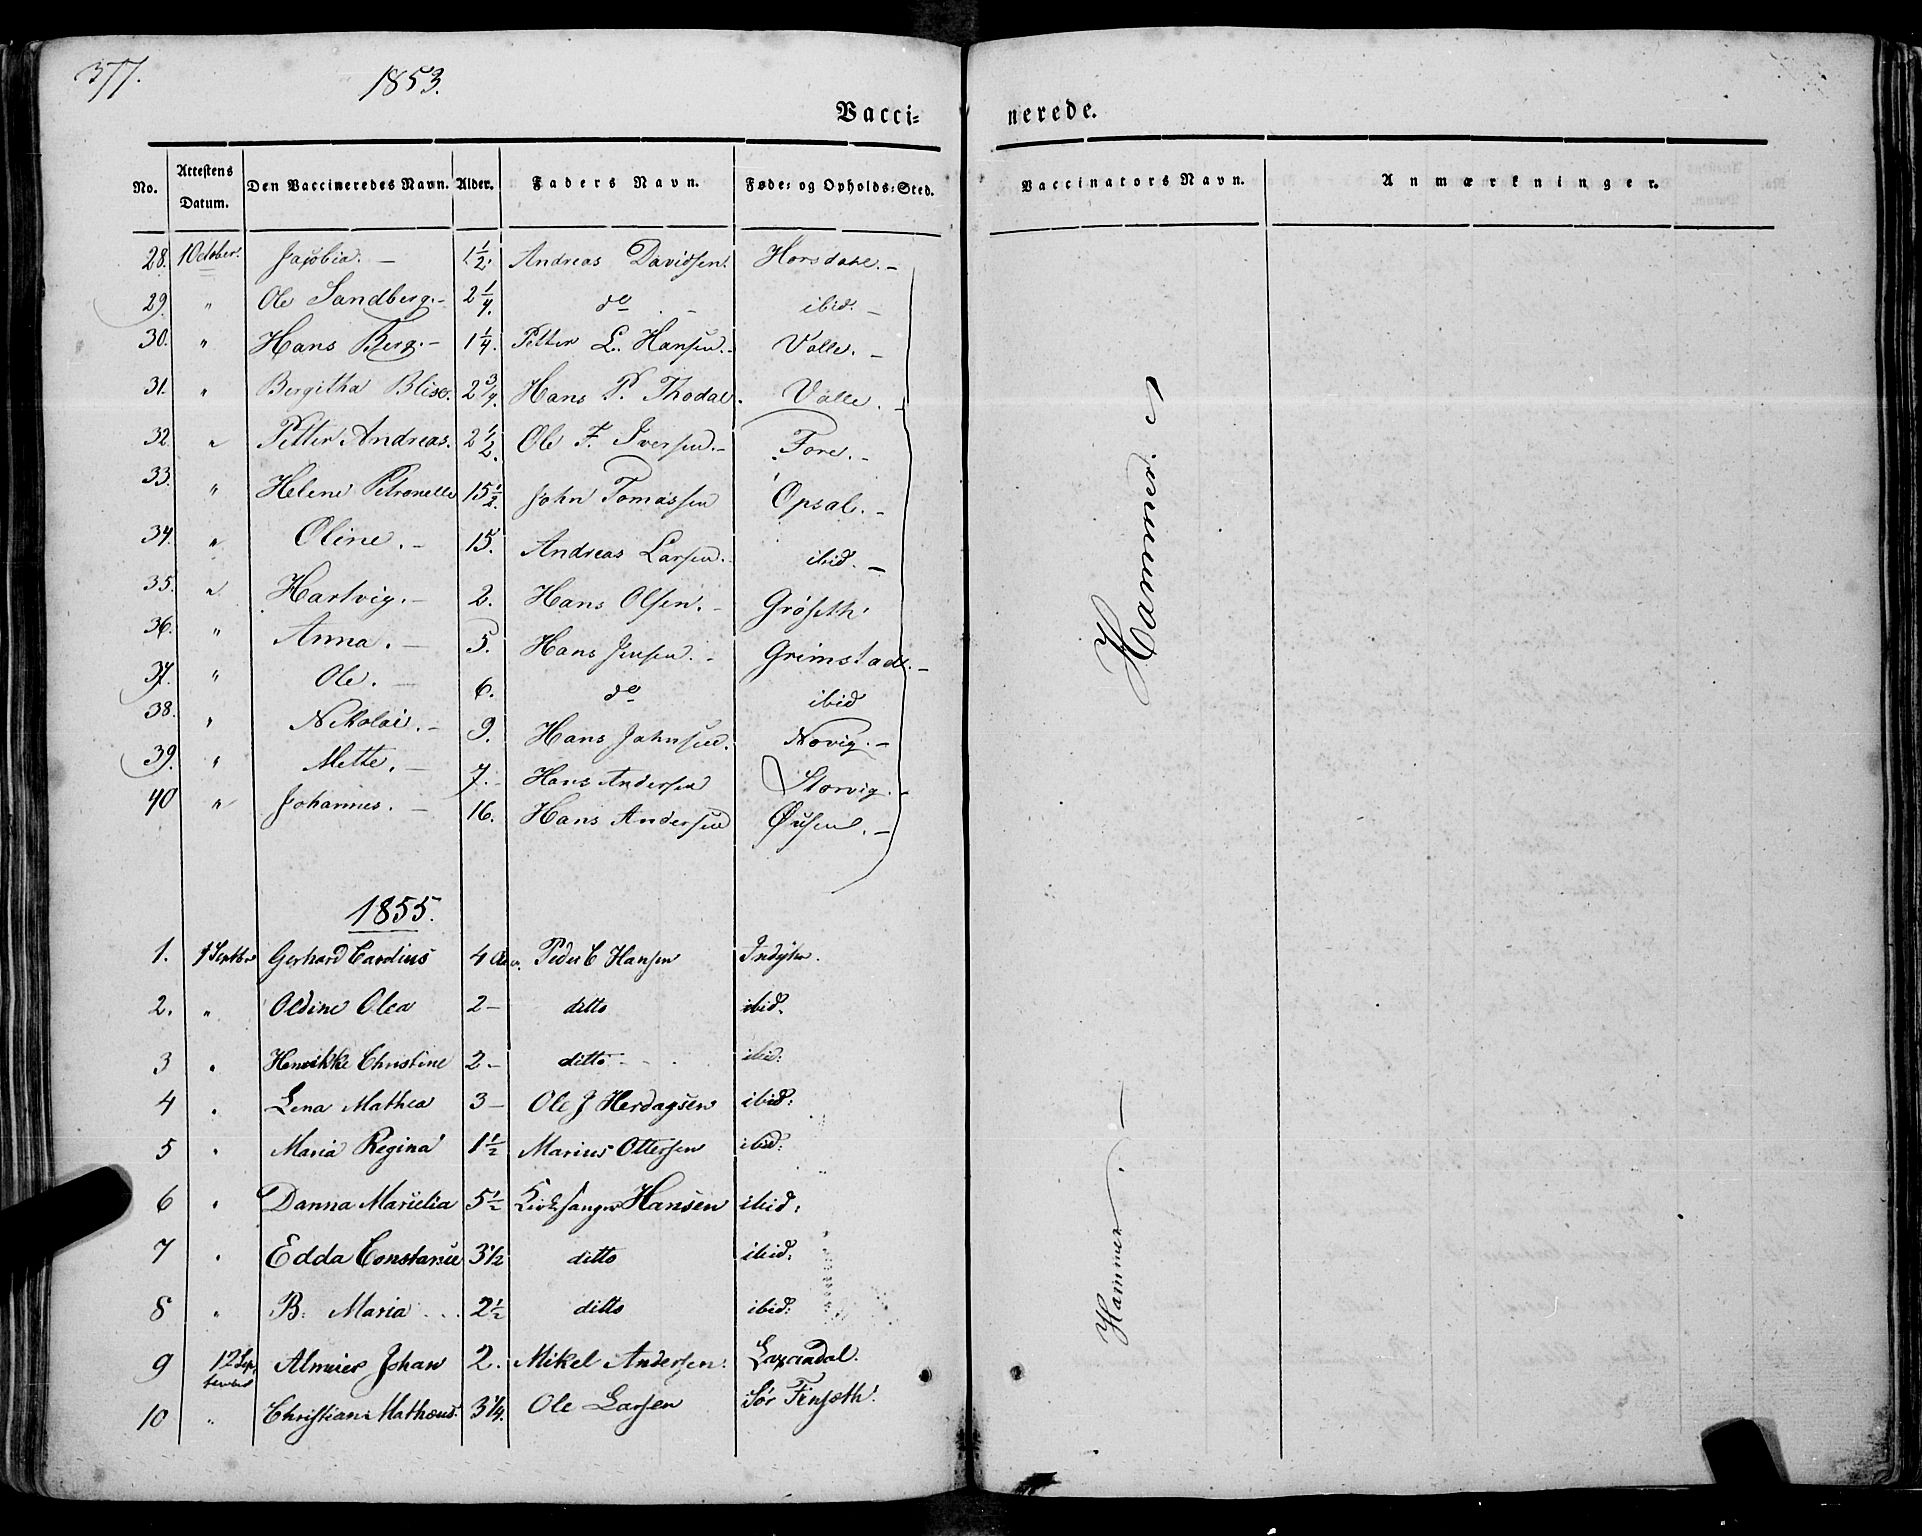 377.
1853.
Vacci= nerede.
No. Attestens Datum. Den Vaccineredes Navn. Alder. Faders Navn. Føde= og Opholds=Sted. Vaccinators Navn. Anmærkninger.
28. 1 October. Jacobia. – 1½. Andreas Davidsen. Horsdahl. –
29. " Ole Sandberg. – 2¼. do – ibid. –
30. " Hans Berg. – 1¼. Petter L. Hansen. – Valle. –
31. " Bergitha Elise. 2¾. Hans P. Thodal. Valle. –
32. " Petter Andreas. 2½. Ole F. Iversen. – Fore. –
33. " Helene Petronelle 15½. John Tomassen Opsal. –
34. " Oline. – 15. Andreas Larsen. ibid. –
35. " Hartvig. – 2. Hans Olsen. – Grøseth
36. " Anna. – 5. Hans Jensen. – Grimstad. –
37. " Ole. – 6. do ibid
38. " Nikolai. – 9. Hans Johnsen. Novig. –
39. " Mette. – 7. – Hans Andersen Storvig. –
40 " Johannes. – 16. Hans Andersen –
Hammer. –
1855.
1. 1 Septbr Gerhard Carolius 4 Aar. Peder C Hansen Indyhr.
2. " Oldine Olea 2 – ditto ibid.
3 " Henrikke Christine 2 – ditto – ibid:
4 " Lena Mathea 3 – Ole J Herdagsen ibid:
5 " Maria Regina 1½ Marius Ottersen ibid:
6 " Danna Marielia 5½ Kirkesanger Hansen ibid:
7 " Edda Constanse 3½ ditto ibid:
8 " B: Maria 2½ ditto ibid:
9 12 September Johan 2. Mikel Andersen. Laxaadal.
10 " Christian Mathæus. 3¼. Ole Larsen Sør Finsæth.
Hammer. –